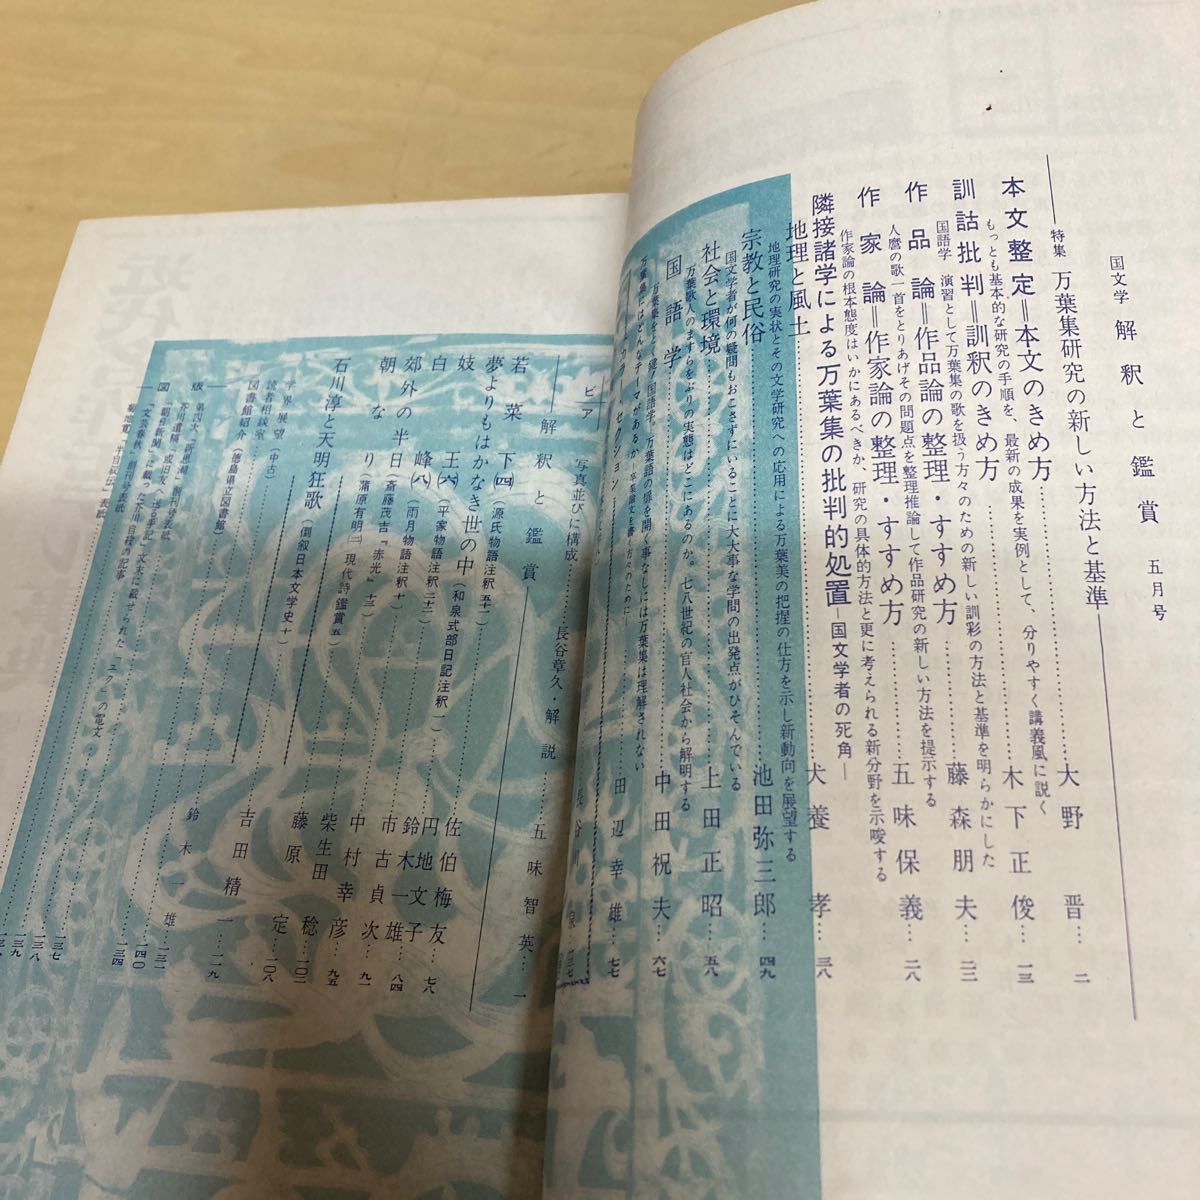 国文学 解釈と鑑賞 五月号
特集 万葉集研究の新しい方法と基準
本文整定＝本文のきめ方……大野晋…二
もっとも基本的な研究の手順を、最新の成果を実例として、分りやすく講義風に説く
訓詁批判＝訓釈のきめ方……木下正俊…一三
国語学 演習として万葉集の歌を扱う方々のための新しい訓彩の方法と基準を明らかにした
作品論＝作品論の整理・すすめ方……藤森朋夫…二三
人麿の歌一首をとりあげその問題点を整理推論して作品研究の新しい方法を提示する
作家論＝作家論の整理・すすめ方……五味保義…二八
作家論の根本態度はいかにあるべきか、研究の具体的方法と更に考えられる新分野を示唆する
隣接諸学による万葉集の批判的処置―国文学者の死角―
地理と風土……犬養孝…三八
地理研究の実状とその文学研究への応用による万葉美の把握の仕方を示し新動向を展望する
宗教と民俗……池田弥三郎…四九
国文学者が何の疑問もおこさずにいることに大大事な学問の出発点がひそんでいる
社会と環境……上田正昭…五八
万葉歌人のますらをぶりの実態はどこにあるのか。七八世紀の官人社会から解明する
国語学……中田祝夫…六七
万葉集をよく読む「国語学」万葉語の扉を開く事なしには万葉集は理解されない
万葉集にはどんなテーマがあるか―卒業論文を書く方々のために―……田辺幸雄…七七
写真並びに構成……長谷章久・解説……五味智英…一
解釈と鑑賞
若菜 下（四）（源氏物語注釈五十一）
夢よりもはかなき世の中（和泉式部日記注釈一）……円地文子
妓王（六）（平家物語注釈二十二）……佐伯梅友…七八
白峰（八）（雨月物語注釈十）……鈴木一雄…八四
郊外の半日（斎藤茂吉『赤光』十三）……市古貞次…九一
朝なり（蒲原有明（二）現代詩鑑賞五）……中村幸彦…九五
石川淳と天明狂歌（倒叙日本文学史十）……柴生田稔…一〇二
藤原定…一〇八
学界展望……吉田精一…一一九
読者相談室（中古）……鈴木一雄…一三一
図書館紹介（徳島県立図書館）…一四〇
図版
第四次「新思潮」創刊号表紙…一三四
芥川遺稿「或旧友へ送る手記」
「朝日新聞」に載った芥川自殺の記事
「文芸春秋」創刊号表紙